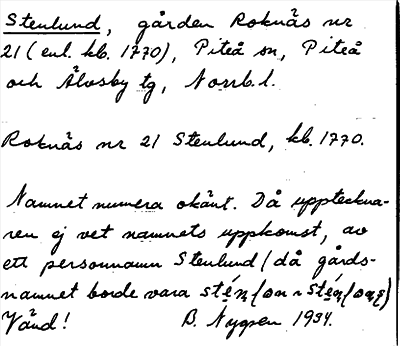 Stenlund, gården Roknäs nr
21 (enl. kb. 1770), Piteå sn, Piteå
och Älvsby tg, Norrb.l.
Roknäs nr 21 Stenlund, kb. 1770.
Namnet numera okänt. Då uppteckna-
ren ej vet namnets uppkomst, av
ett personnamn Stenlund (då gårds-
namnet borde vara
Vänd! B. Nygren 1934.